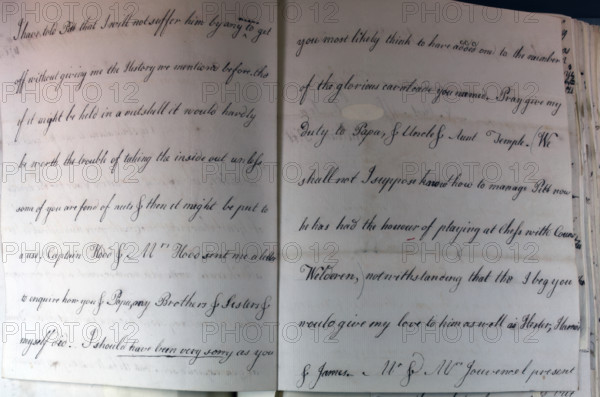 I have told Pitt that I will not suffer him by any means to get
off without giving me the History we mentioned before, tho
if it might be held in a nutshell it would hardly
be worth the trouble of taking the inside out unless
some of you are fond of nuts & then it might be put to
a use, Captain Hood & Mrs Hood sent me a letter
to enquire how you & Papa, my Brothers & Sisters &
myself do. I should have been very sorry as you
you most likely think to have added one to the number
of the glorious you Pray give my
duty to Papa, & Uncle & Aunt Temple. We
shall not I suppose know how to manage Pitt now
he has had the honour of playing at Chess with Count
notwithstanding that tho I beg you
would give my love to him as well as Hester, Harriot
& James. Mr & Mrs Jouvencel present
PHOTO 12